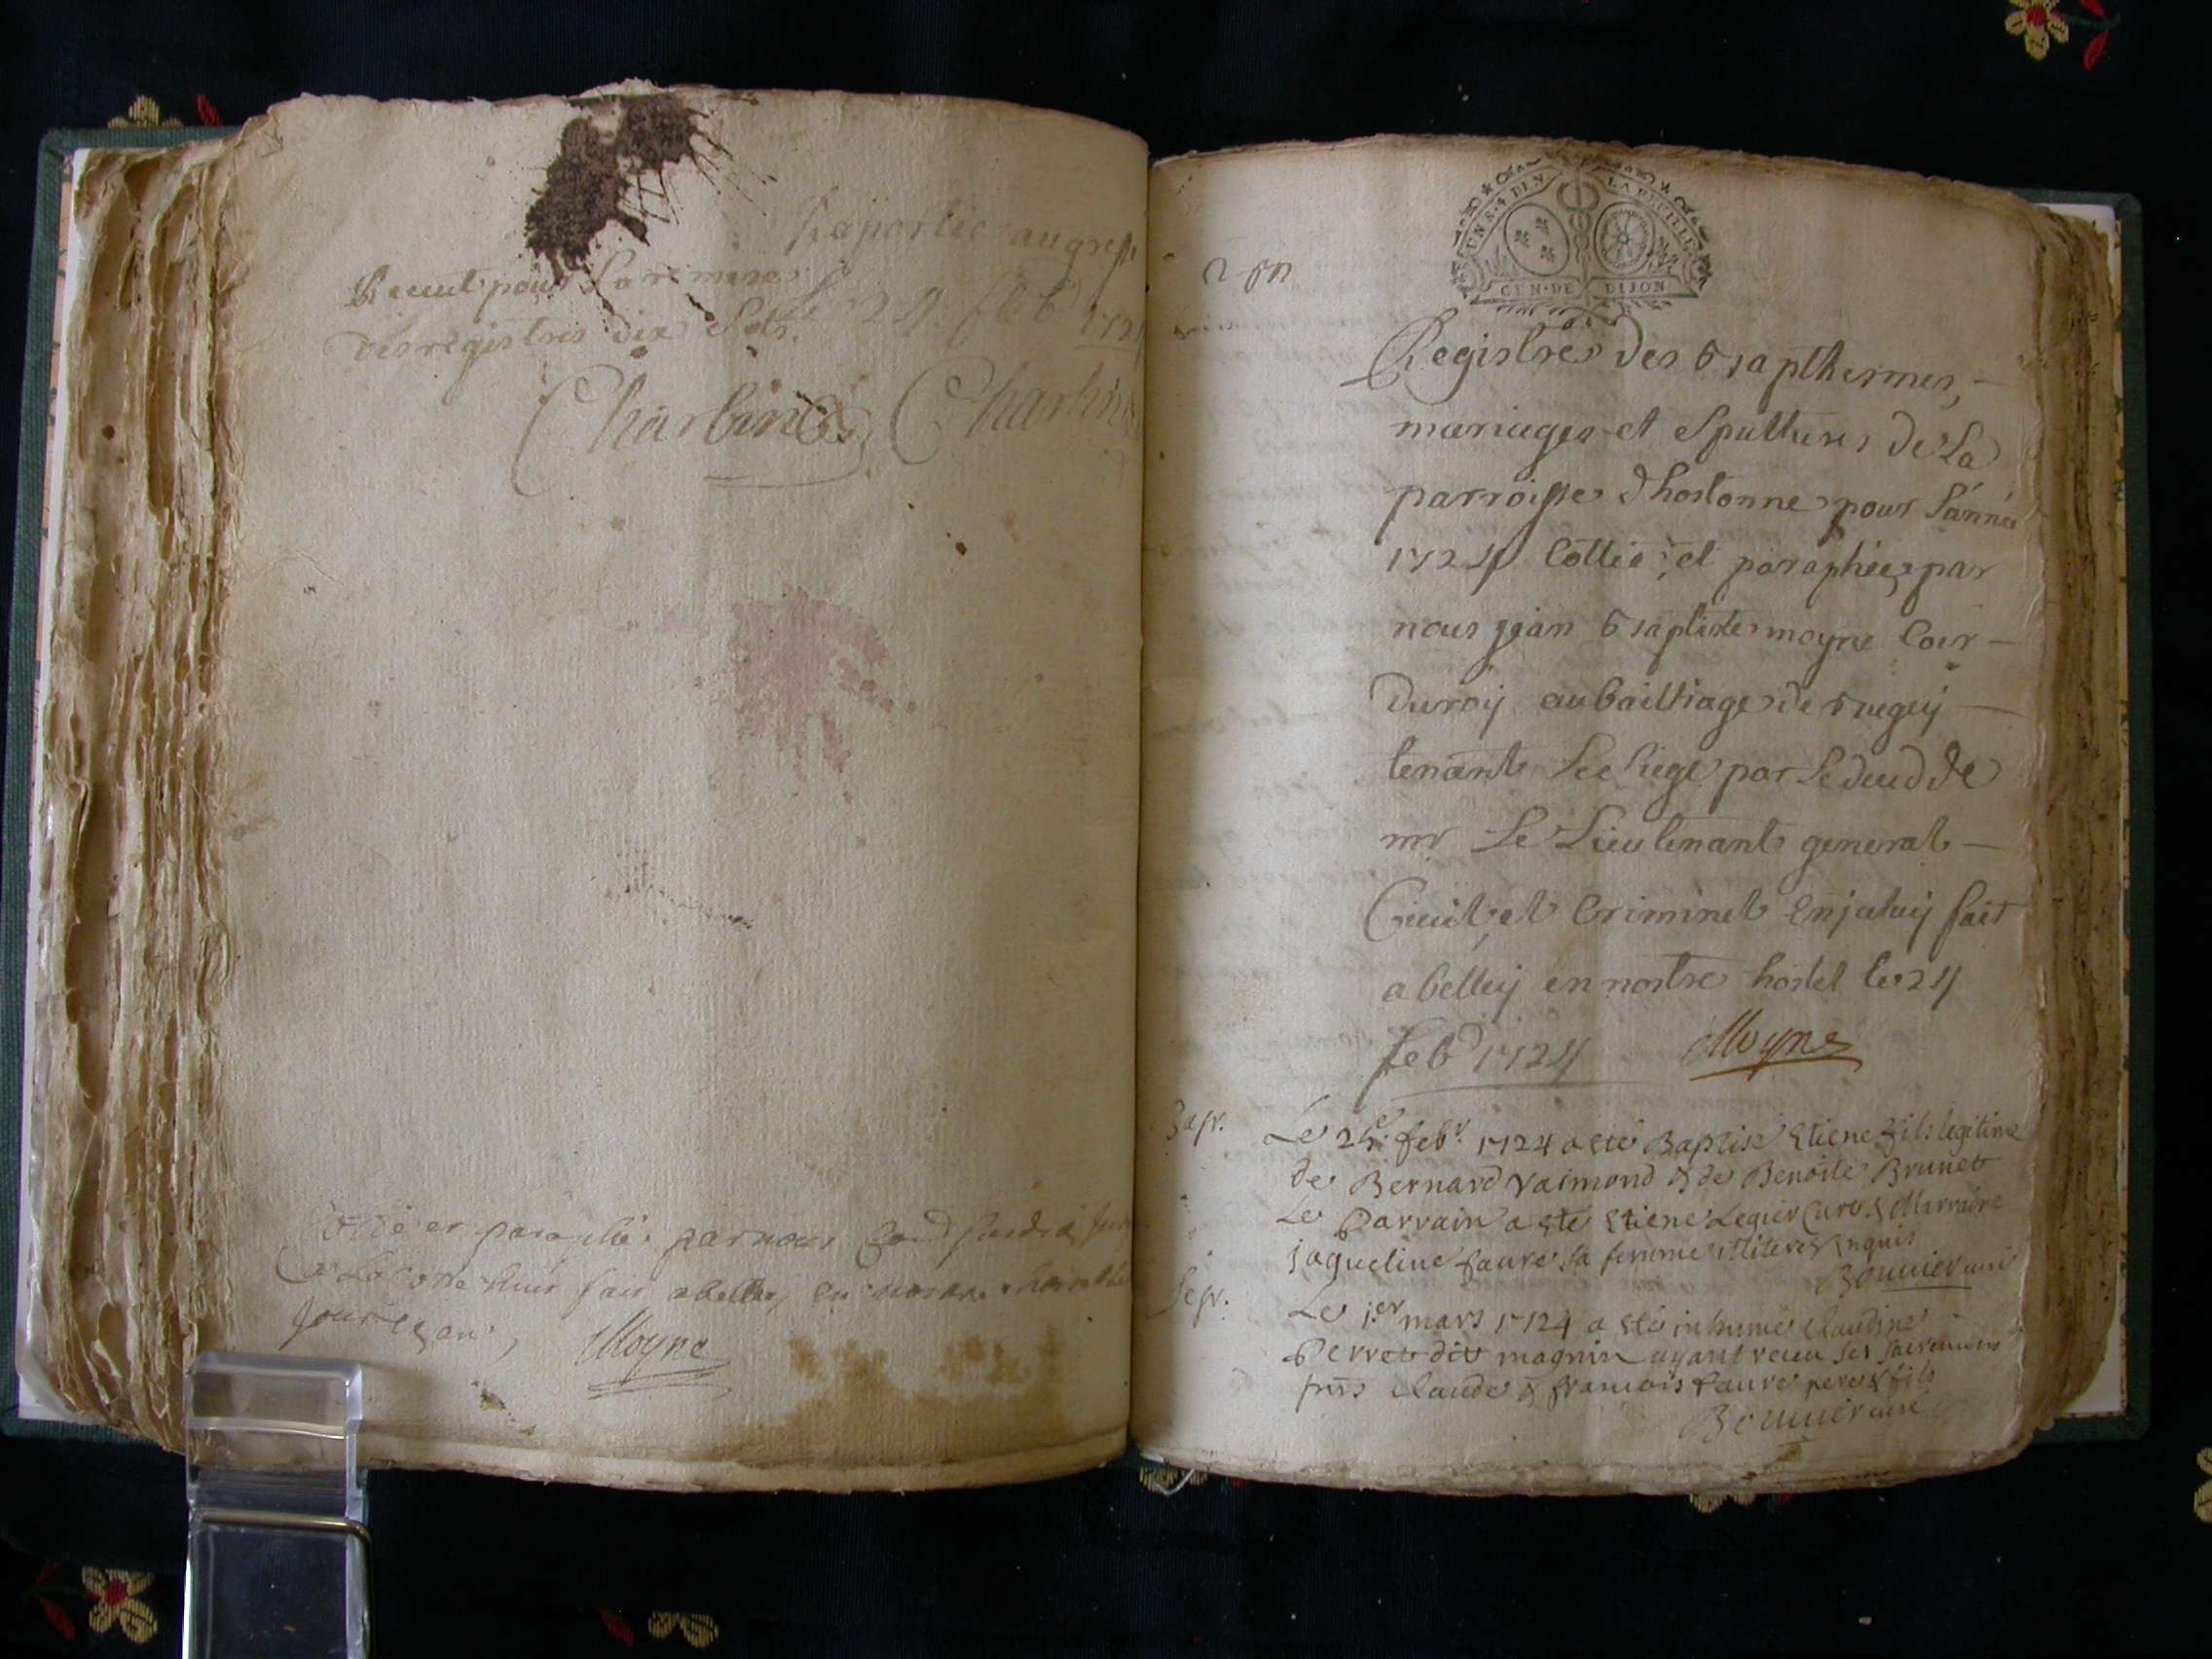 Raportée au greffe
Receut pour la remise
le 24 feb
des registres dix sols.
Charbin Charbin
Cotté et paraphé par nous
huit fait a belley en nostre hostel les
jour et an,
Moyne
UN S. 4 DEN. LA FEUILLE
GEN. DE DIJON
Registres des bapthesmes,
mariages et sputtures de La
parroisse d'hostonne pour L'année
1724 Cottée et paraphée par
nous jean baptiste moyne Coer
du roy au bailliage de bugey
tenant Le siege par Le deced de
mr Le Lieutenant general
Civil et Criminel Enjaluy fait
a belley en nostre hostel le 24
feb 1724 Moyne
Bapt. Le 25e febr. 1724 a esté Baptisé Etiene fils legitime
de Bernard vaimond & de Benoite Brunet
Le Parrain a esté Etiene & Marraine
jaqueline faure sa femme illiteres enquis
Bouvier curé
Sept. Le 1er mars 1724 a esté inhumé Claudine
Perret dit magnin ayant receu ses sacremens
pnts Claude & francois faure pere & fils
Bouvier curé